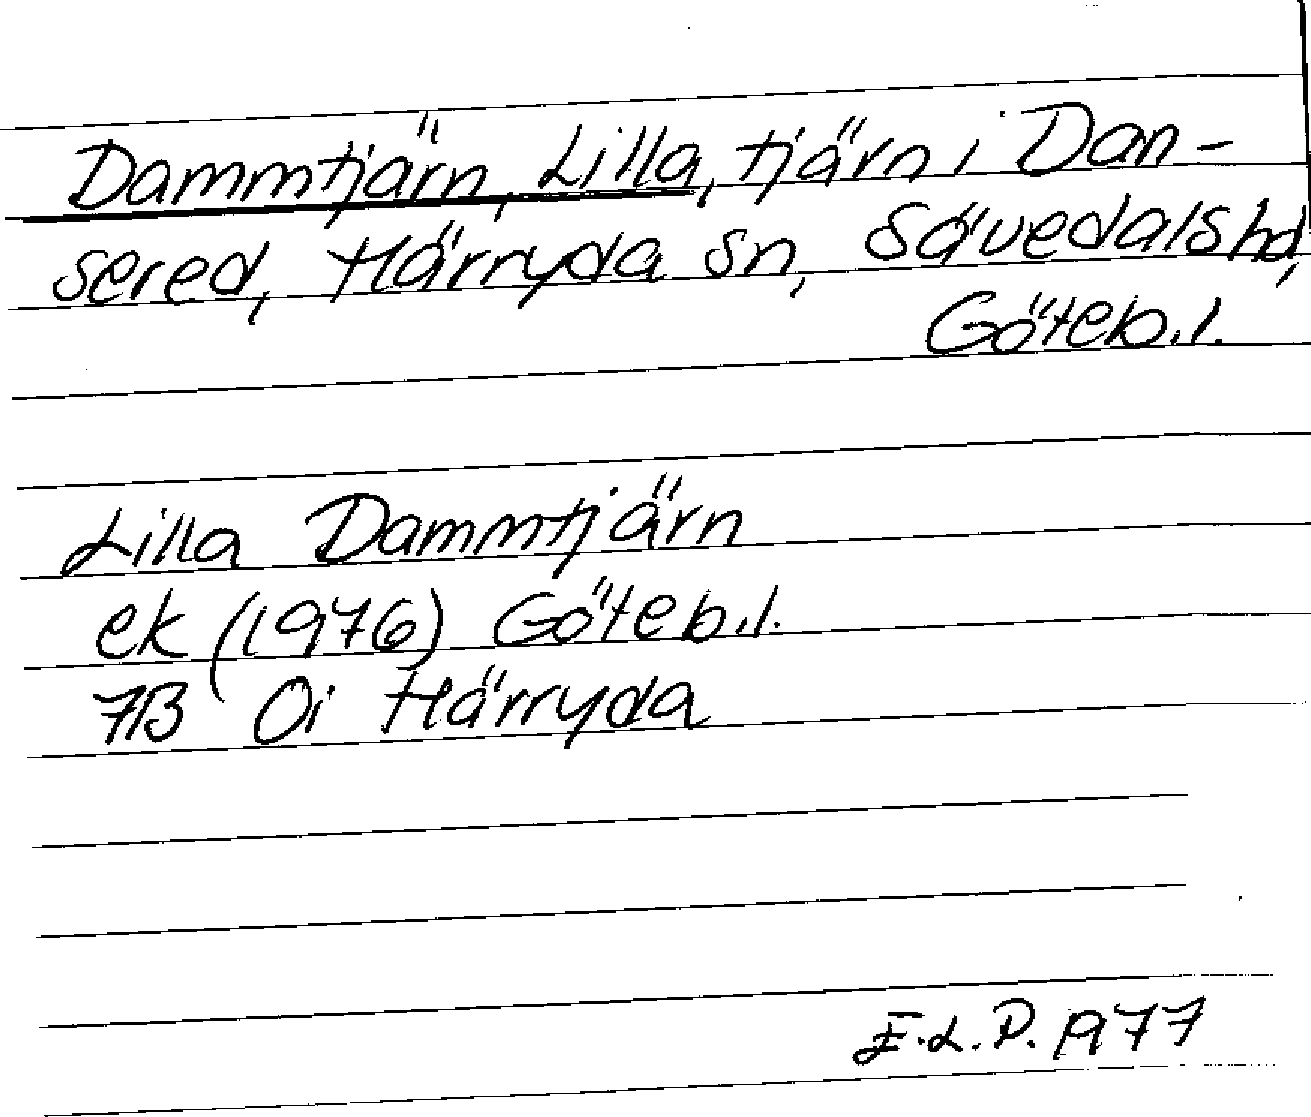 Dammtjärn, Lilla, tjärn i Dan-
sered, Härryda sn, Sävedals hd,
Göteb.l.
Lilla Dammtjärn
ek (1976) Göteb.l.
7B 0i Härryda
E.L.P. 1977